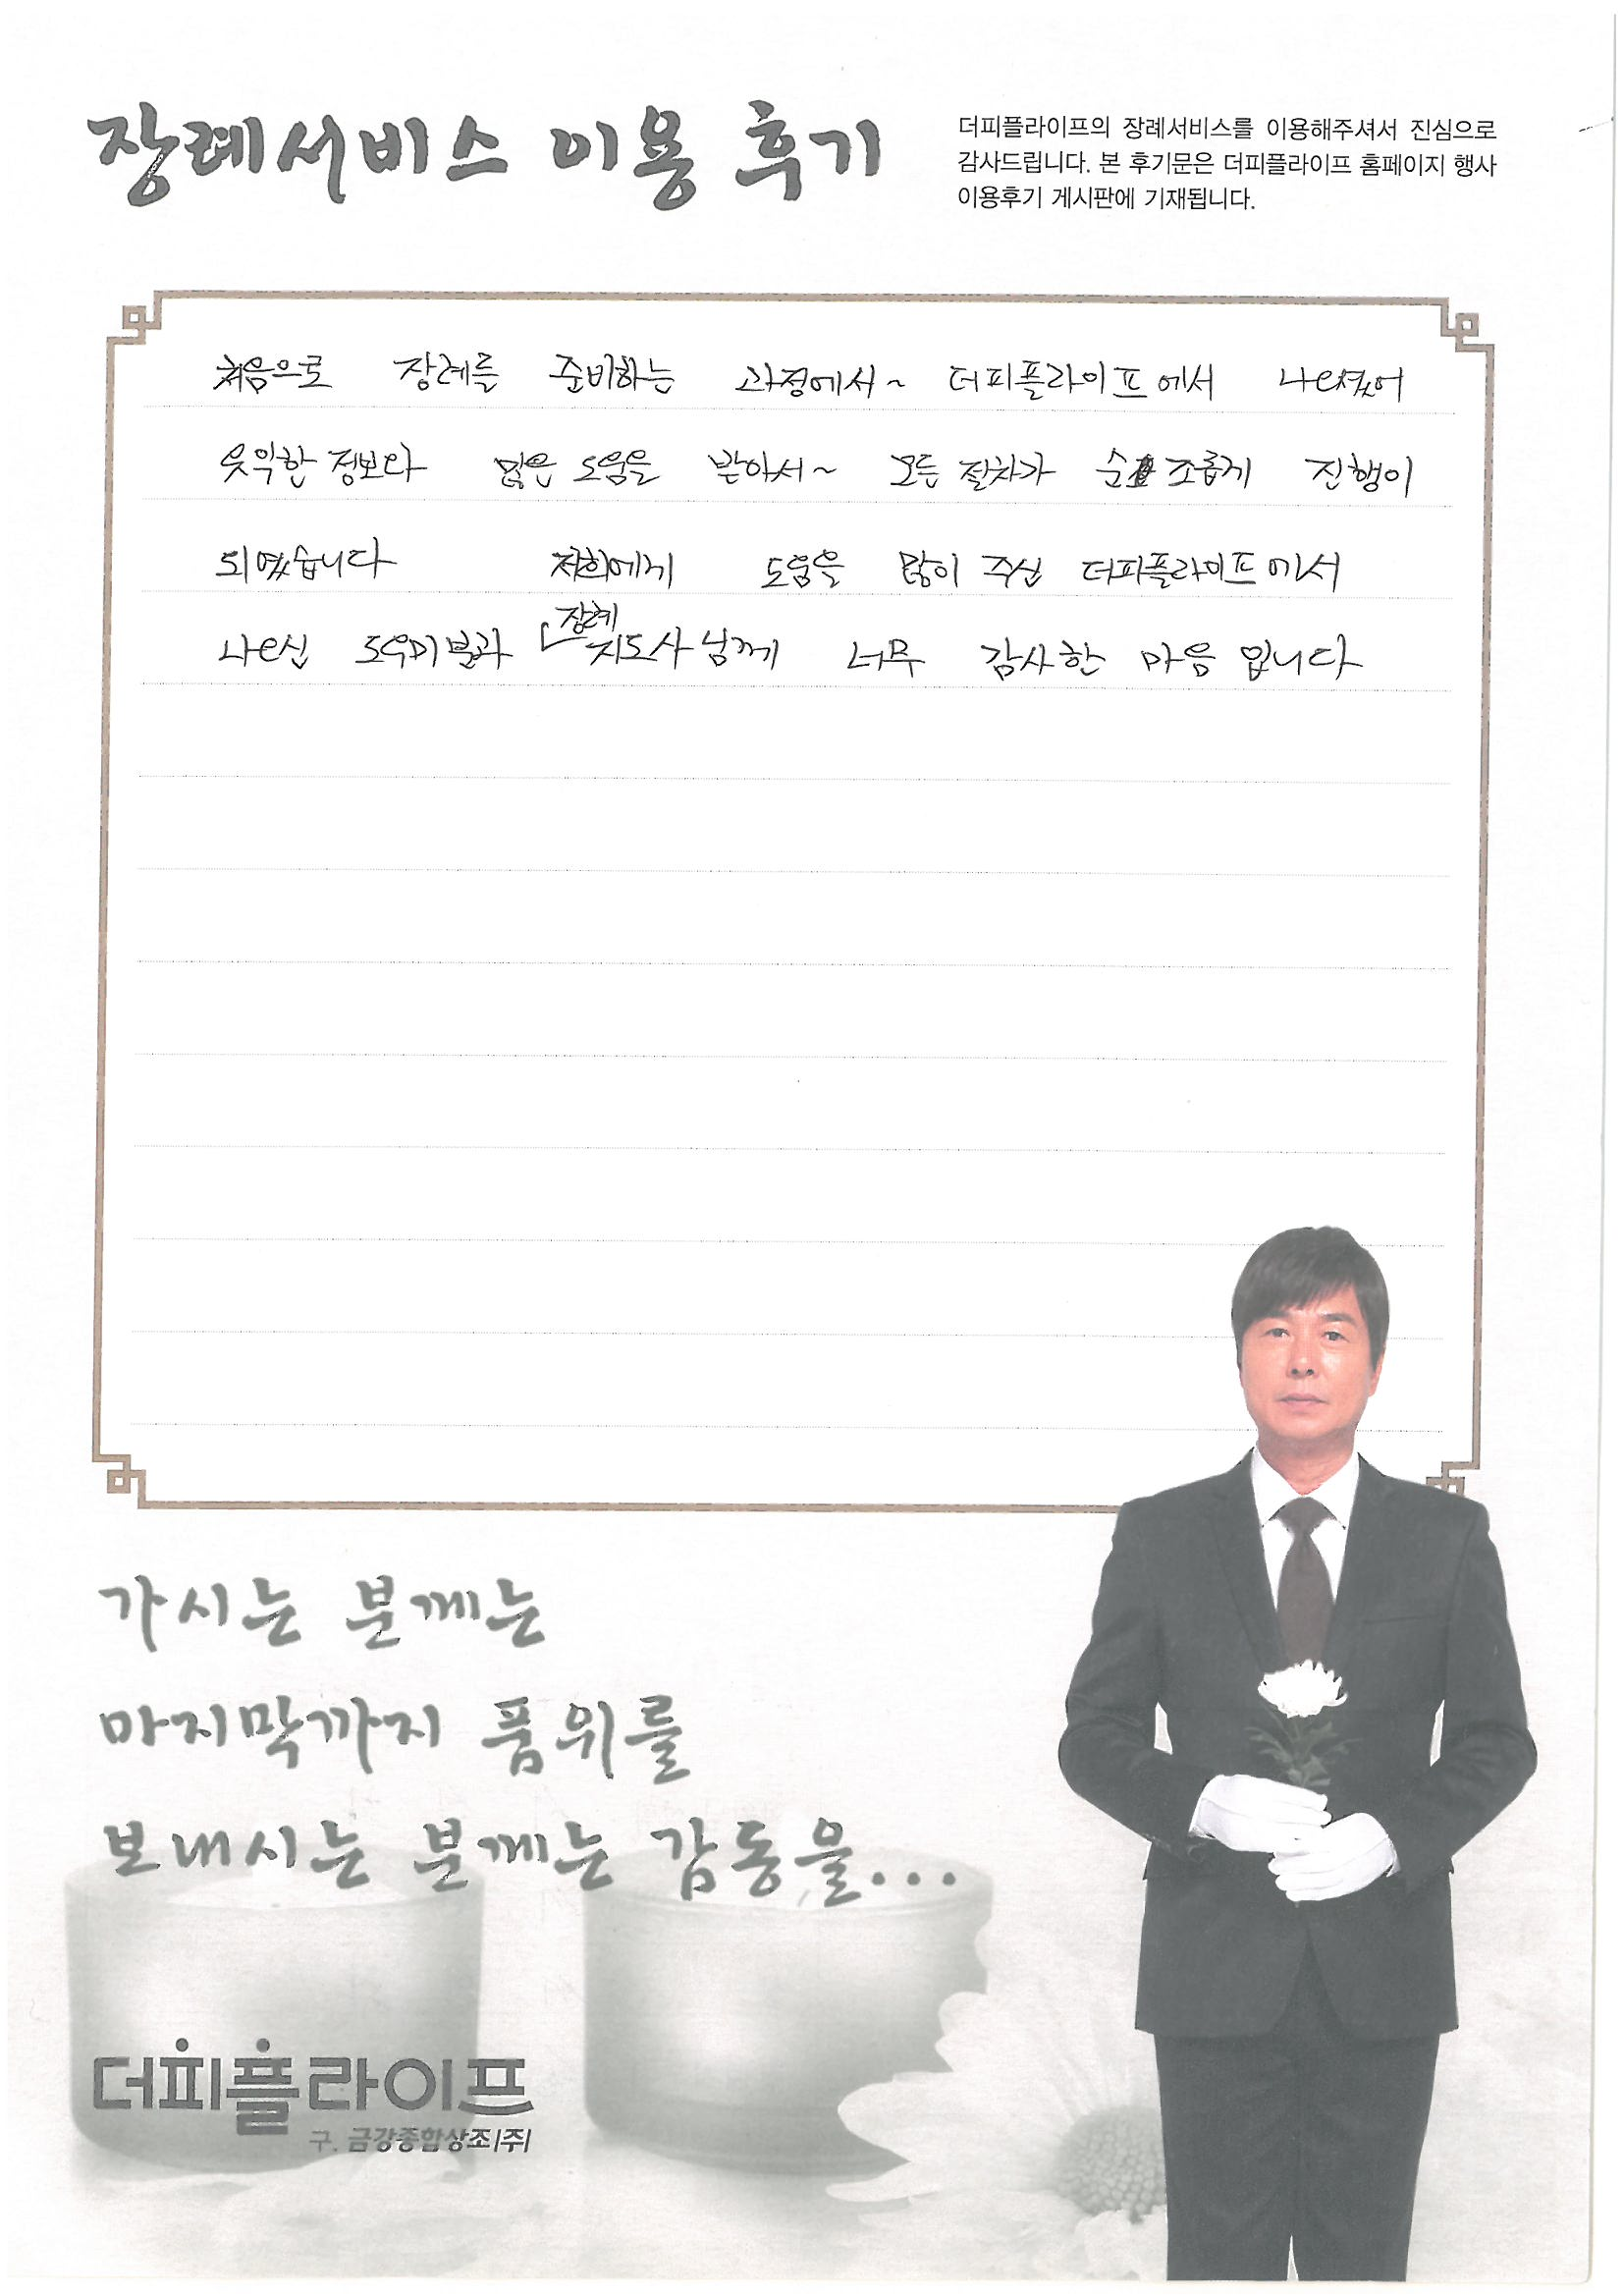 장례서비스 이용 후기
더피플라이프의 장례서비스를 이용해주셔서 진심으로
감사드립니다. 본 후기문은 더피플라이프 홈페이지 행사
이용후기 게시판에 기재됩니다.
처음으로 장례를 준비하는 과정에서~ 더피플라이프에서 나오셨어
유익한 정보와 많은 도움을 받아서~ 모든 절차가 순조롭게 진행이
되였습니다 저희에게 도움을 많이 주신 더피플라이프에서
장례
나오신 도우미분과 지도사님께 너무 감사한 마음 입니다
가시는 분께는
마지막까지 품위를
보내시는 분께는 감동을...
더피플라이프
구. 금강종합상조(주)